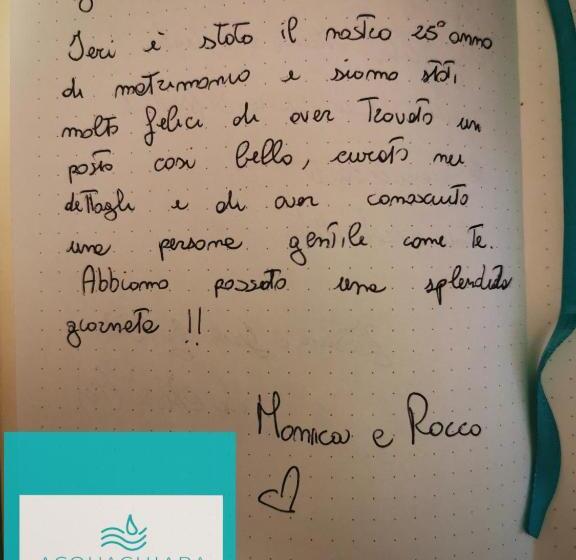 Ieri è stato il nostro 25° anno
di matrimonio e siamo stati
molto felici di aver Trovato un
posto così bello, curato nei
dettagli e di aver conosciuto
una persona gentile come Te.
Abbiamo passato una splendida
giornata !!
Monica e Rocco
ACQUACHIARA